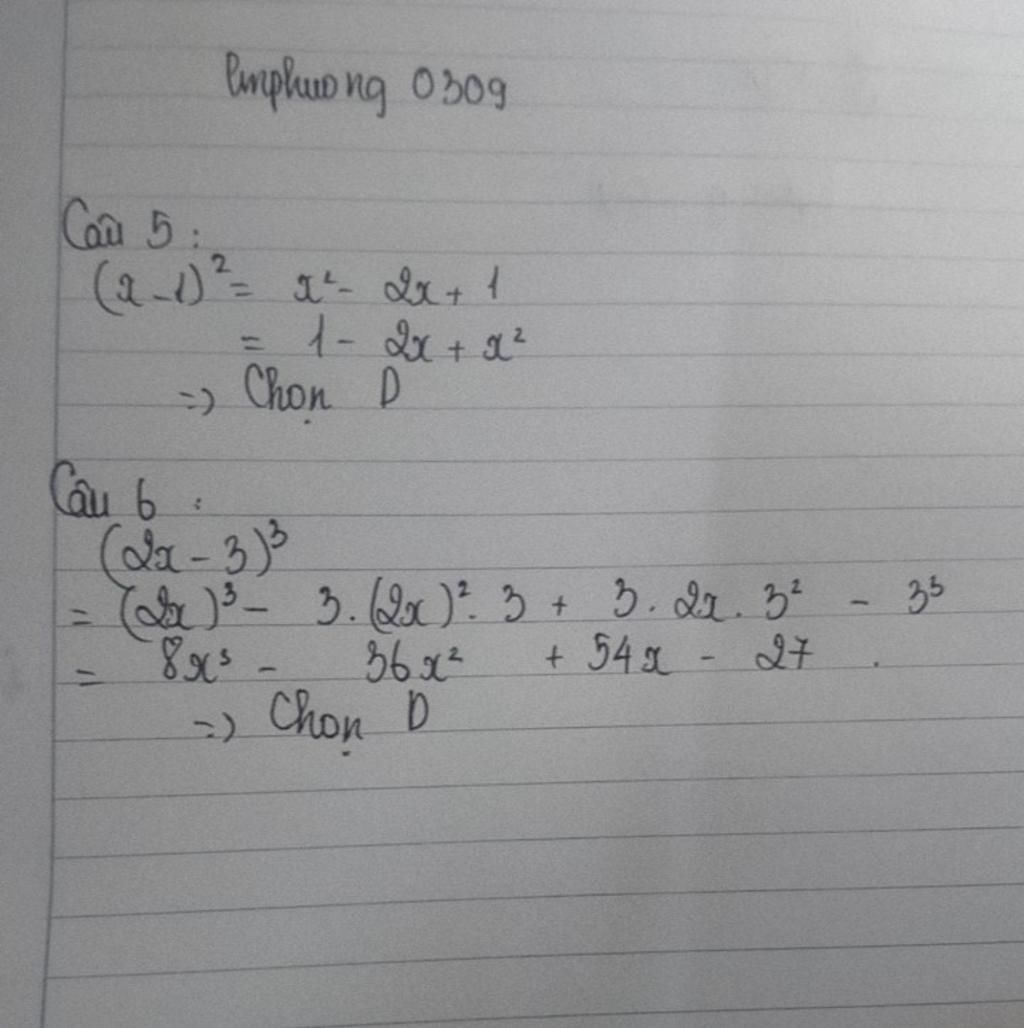 linphuong 0309
Câu 5 :
(x - 1)² = x² - 2x + 1
= 1 - 2x + x²
=> Chọn D
Câu 6 :
(2x - 3)³
= (2x)³ - 3.(2x)². 3 + 3. 2x. 3² - 3³
= 8x³ - 36x² + 54x - 27 .
=> Chọn D